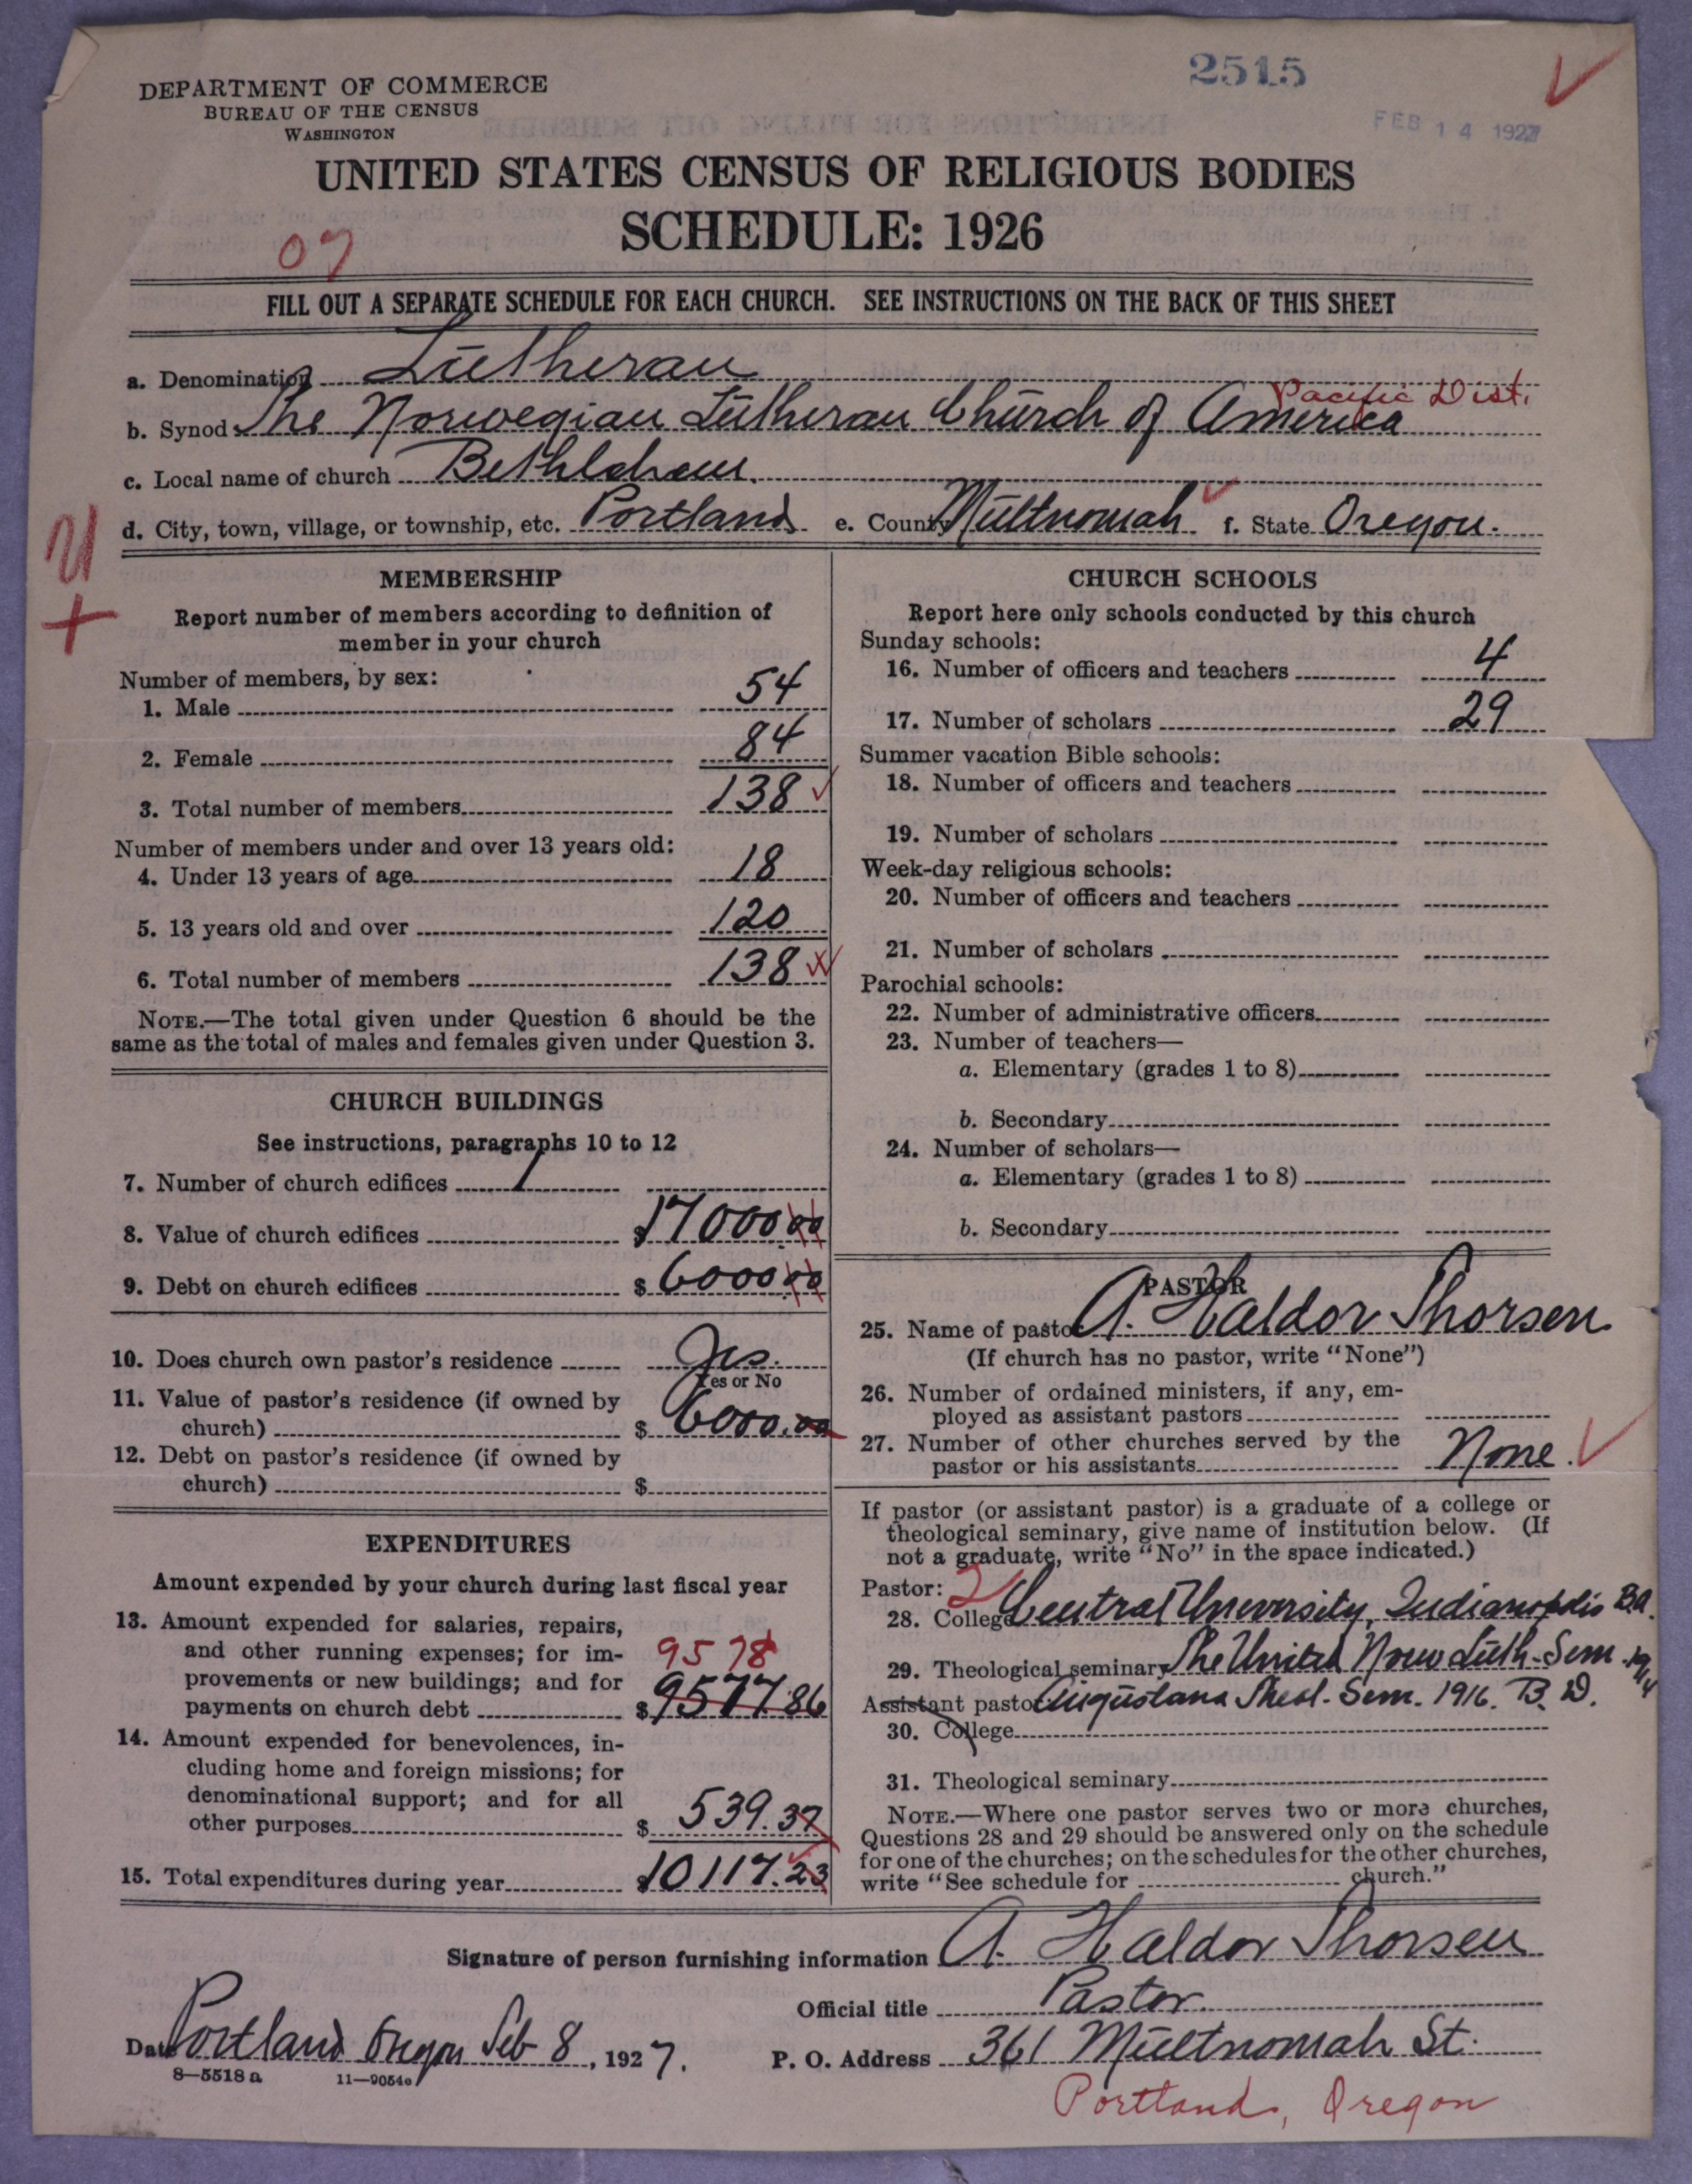 2515
FEB 14 1927
DEPARTMENT OF COMMERCE
BUREAU OF THE CENSUS
WASHINGTON
UNITED STATES CENSUS OF RELIGIOUS BODIES
SCHEDULE: 1926
07
FILL OUT A SEPARATE SCHEDULE FOR EACH CHURCH. SEE INSTRUCTIONS ON THE BACK OF THIS SHEET
a. Denomination Lutheran
Pacific Dist.
b. Synod The Norwegian Lutheran Church of America
c. Local name of church Bethlehem.
d. City, town, village, or township, etc. Portland e. County Multnomah f. State Oregon.
MEMBERSHIP
Report number of members according to definition of
member in your church
Number of members, by sex:
1. Male 54
2. Female 84
3. Total number of members 138
Number of members under and over 13 years old:
4. Under 13 years of age 18
5. 13 years old and over 120
6. Total number of members 138
NOTE.—The total given under Question 6 should be the
same as the total of males and females given under Question 3.
CHURCH BUILDINGS
See instructions, paragraphs 10 to 12
7. Number of church edifices 1
8. Value of church edifices $17000.00
9. Debt on church edifices $6000.00
10. Does church own pastor's residence Yes.
Yes or No
11. Value of pastor's residence (if owned by
church) $6000.00
12. Debt on pastor's residence (if owned by
church) $
EXPENDITURES
Amount expended by your church during last fiscal year
13. Amount expended for salaries, repairs,
and other running expenses; for im- 9578
provements or new buildings; and for
payments on church debt $9577.86
14. Amount expended for benevolences, in-
cluding home and foreign missions; for
denominational support; and for all
other purposes $539.37
15. Total expenditures during year $10117.23
CHURCH SCHOOLS
Report here only schools conducted by this church
Sunday schools:
16. Number of officers and teachers 4
17. Number of scholars 29
Summer vacation Bible schools:
18. Number of officers and teachers
19. Number of scholars
Week-day religious schools:
20. Number of officers and teachers
21. Number of scholars
Parochial schools:
22. Number of administrative officers
23. Number of teachers—
a. Elementary (grades 1 to 8)
b. Secondary
24. Number of scholars—
a. Elementary (grades 1 to 8)
b. Secondary
PASTOR
25. Name of pastor A. Haldor Thorsen
(If church has no pastor, write "None")
26. Number of ordained ministers, if any, em-
ployed as assistant pastors
27. Number of other churches served by the
pastor or his assistants None.
If pastor (or assistant pastor) is a graduate of a college or
theological seminary, give name of institution below. (If
not a graduate, write "No" in the space indicated.)
Pastor: 2
28. College Central University, Indianapolis B.A.
29. Theological seminary The United Norw Luth. Sem. 1914
Assistant pastor: Augustana Theol. Sem. 1916. B. D.
30. College
31. Theological seminary
NOTE.—Where one pastor serves two or more churches,
Questions 28 and 29 should be answered only on the schedule
for one of the churches; on the schedules for the other churches,
write "See schedule for church."
Signature of person furnishing information A. Haldor Thorsen
Official title Pastor.
Date Portland Oregon Feb 8, 1927. P. O. Address 361 Multnomah St.
8—5518 a 11—9054
Portland, Oregon